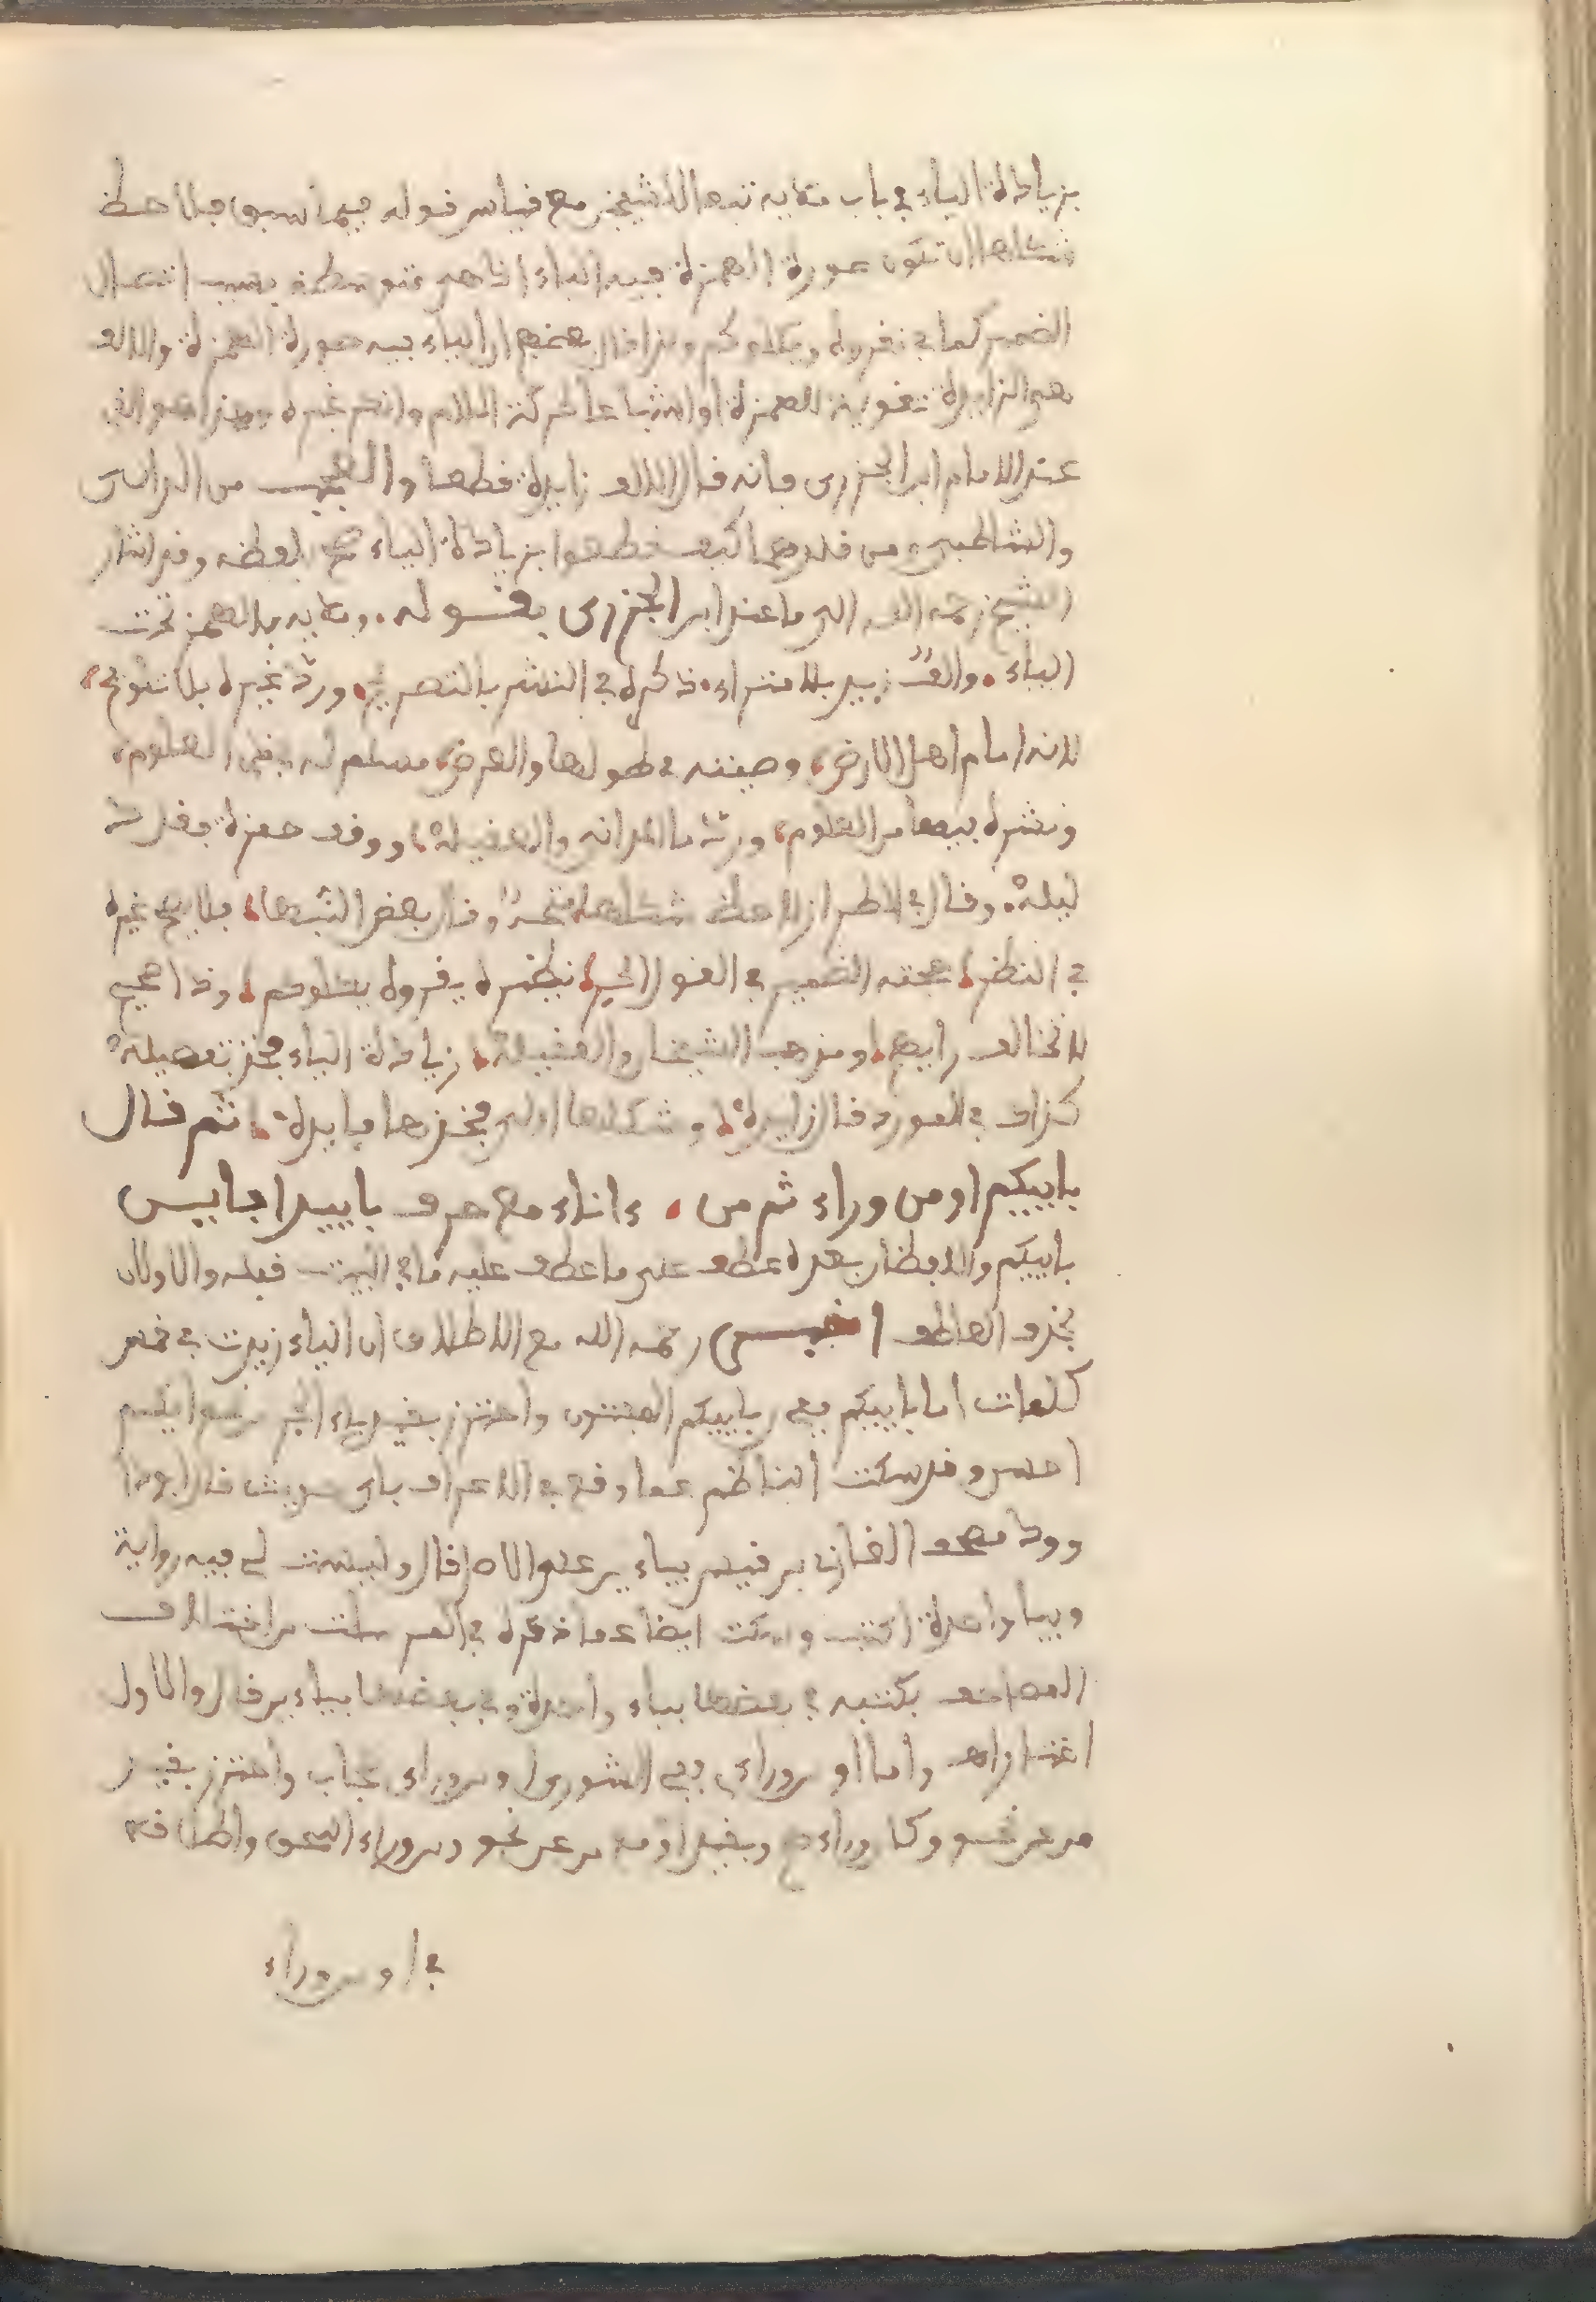 بزيادة الياء في باب ملإيه تبعا للشيخين مع قياس قوله فيما سبق فلاحظ
شكلها ان تكون صورة الهمزة فيه الياء اذا هي متوسطة بسبب اتصال
الضمير كما في نقرؤه ويكلؤكم ولذا قال بعضهم ان الياء فيه صورة الهمزة والالف
هي الزايدة تقوية للهمزة او اشباعا لحركة اللام وانظر غيره وهذا هو
عند الامام ابن الجزري فانه قال الالف زايدة قطعا والعجب من الداني
والشاطبي ومن قلدهما كيف قطعوا بزيادة الياء في وقد اشار
الشيخ رحمه الله الى ما عند ابن الجزري بقوله وملإيه بالهمز تحت
الياء والف زيد بلا امتراء ذكره في النشر بالتصريح ورد غيره بلا تلويح
لانه امام اهل الارض وصيته في طولها والعرض مسلم له في العلوم
ونشره من العلوم ورد ما للداني والعقيلة ووقف حمزة
وقال في الطراز لاحظ شكلها وقال بعض النبها
في النظر صحته الضمير في القول نظيره يقرؤه يكلؤكم وذا صحيح
لا تخالف رأيهم ومذهب الشيخان والعقيلة زيادة الياء فخذ تفصيله
كذاك في المورد قال زايدة وشكلها اولى فخذها فايدة ثم قال
باييكم او من وراء ثم من ءاناء مع حرف باييد افايين
باييكم والالفاظ بعده عطف على ما عطف عليه ما في البيت قبله والاولان
بحذف العاطف رحمه الله مع الاطلاق ان الياء زيدت في خمس
كلمات اما باييكم ففي باييكم المفتون واحترز بقيد باء الجر من ايكم
احسن وقد سكت الناظم عما وقع في الاعراف باي حديث قال ابو دا
وود مصحف الغازي بن قيس بياءين على الاصل قال وليست لي فيه رواية
وبيا واحدة اكتب وسكت ايضا عما ذكره في المرسلت من اختلاف
المصاحف بكتبه في بعضها بياء واحدة وفي بعضها بياءين قال والاول
اختار اهـ واما او من وراء ففي الشورى او من وراء حجاب واحترز بقيد
من عن نحو وكان وراءهم وبقيد او من عن نحو ومن وراء اسحق واطلاقه
في او من وراء